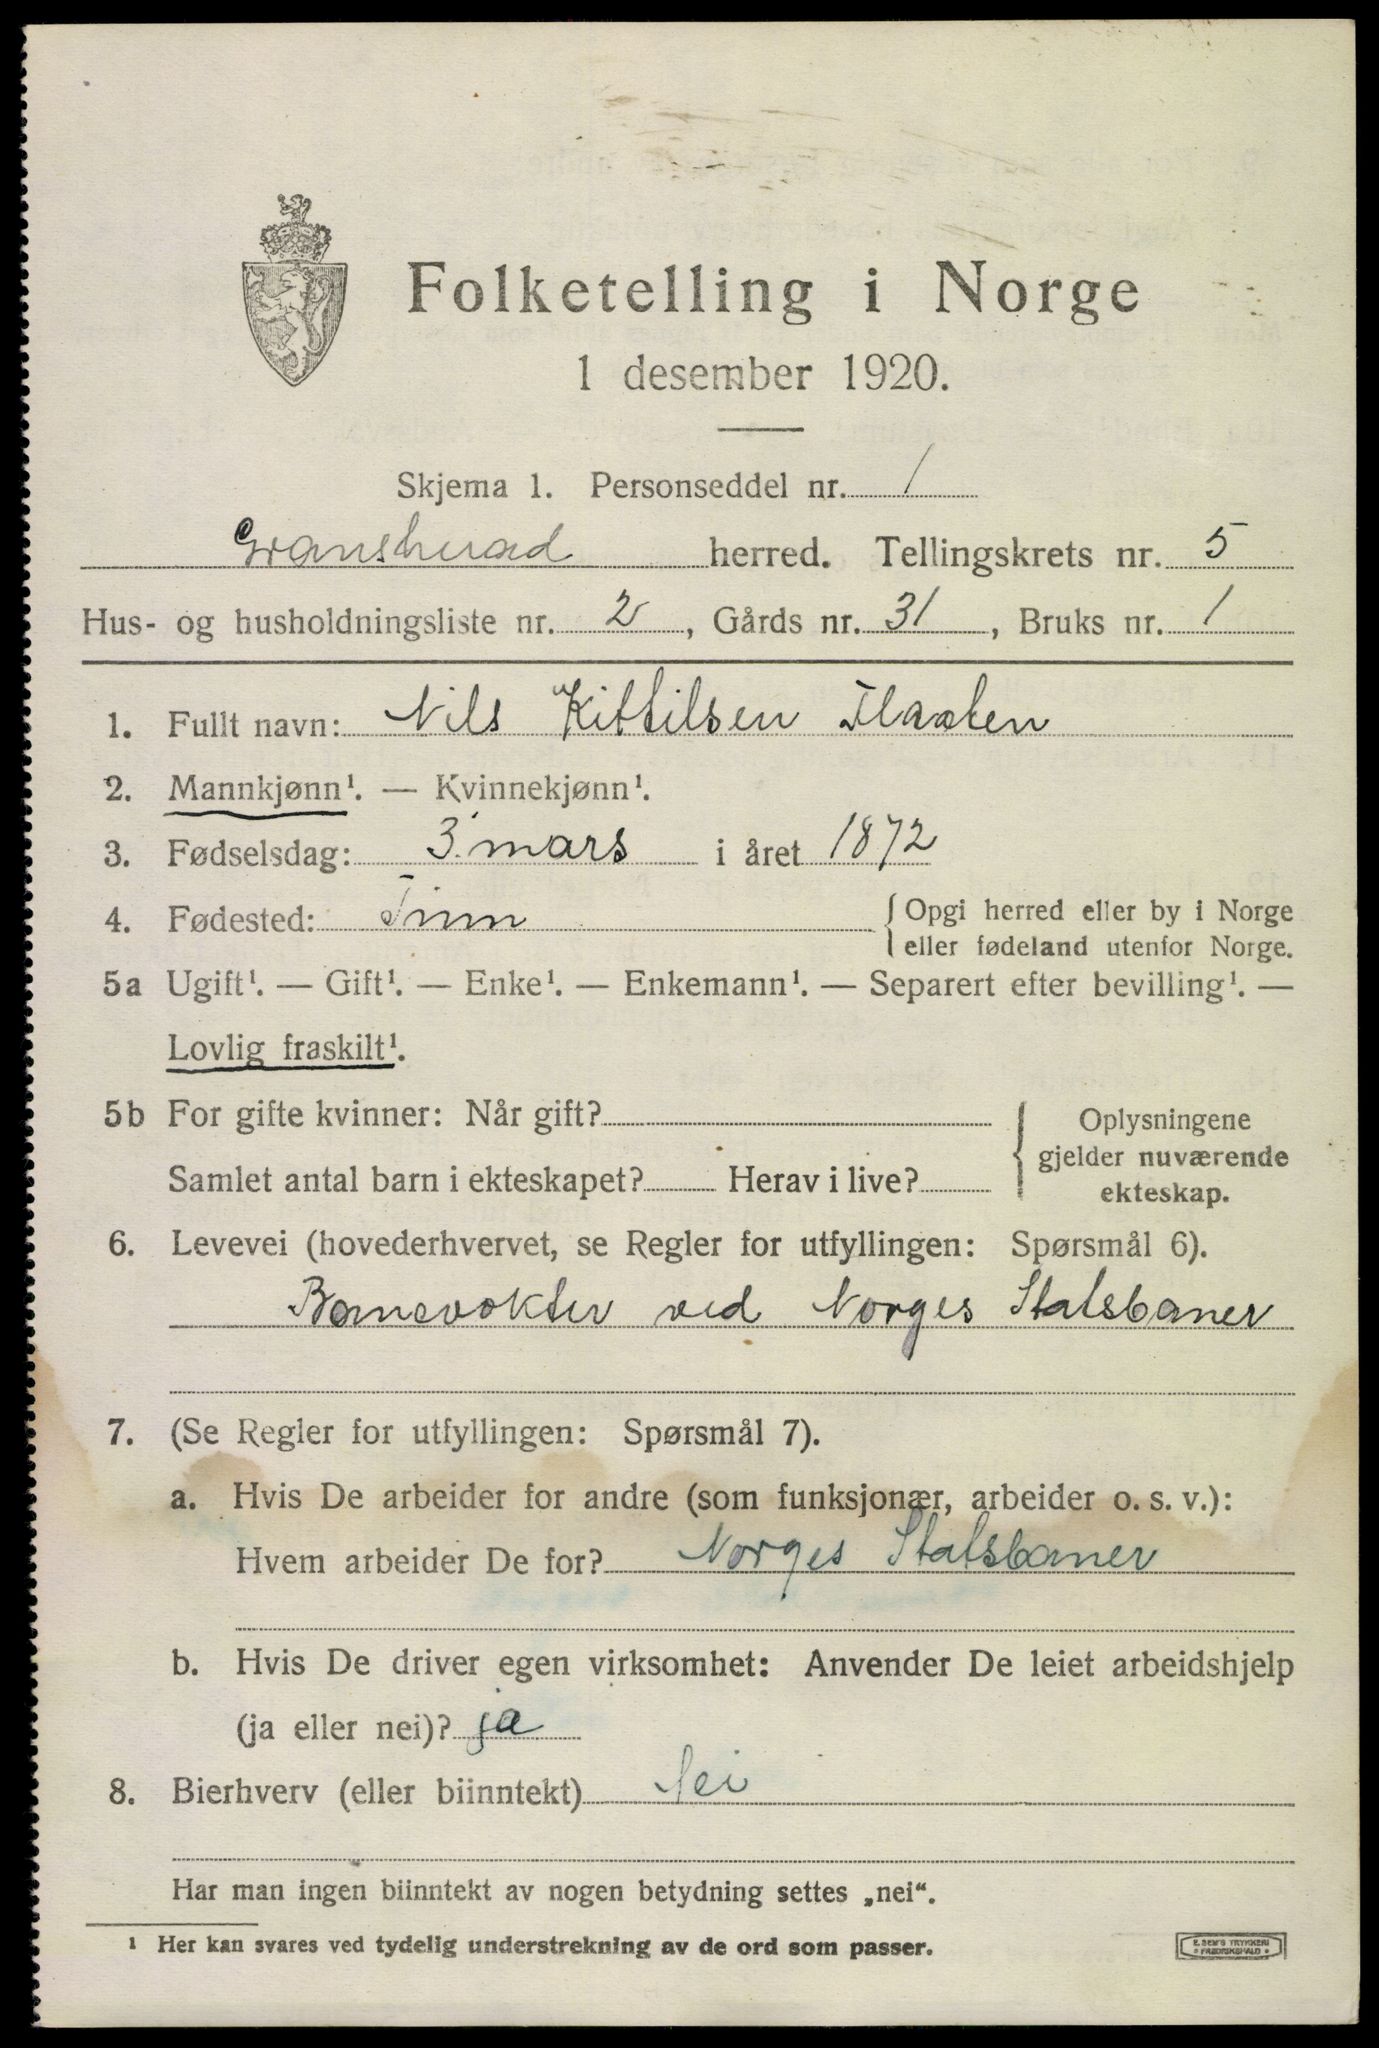 Folketelling i Norge
1 desember 1920.
Skjema 1. Personseddel nr. 1
Gransherad herred. Tellingskrets nr. 5
Hus- og husholdningsliste nr. 2, Gårds nr. 31, Bruks nr. 1
1. Fullt navn: Nils Kittilsen Flaaten
2. Mannkjønn¹. — Kvinnekjønn¹.
3. Fødselsdag: 3. mars i året 1872
4. Fødested: Tinn { Opgi herred eller by i Norge
eller fødeland utenfor Norge.
5a Ugift¹. — Gift¹. — Enke¹. — Enkemann¹. — Separert efter bevilling¹. —
Lovlig fraskilt¹.
5b For gifte kvinner: Når gift?
Samlet antal barn i ekteskapet? Herav i live?
Oplysningene
gjelder nuværende
ekteskap.
6. Levevei (hovederhvervet, se Regler for utfyllingen: Spørsmål 6).
Banevokter ved Norges Statsbaner
7. (Se Regler for utfyllingen: Spørsmål 7).
a. Hvis De arbeider for andre (som funksjonær, arbeider o. s. v.):
Hvem arbeider De for? Norges Statsbaner
b. Hvis De driver egen virksomhet: Anvender De leiet arbeidshjelp
(ja eller nei)? ja
8. Bierhverv (eller biinntekt) Nei
Har man ingen biinntekt av nogen betydning settes „nei“.
¹ Her kan svares ved tydelig understrekning av de ord som passer.
E. SEM'S TRYKKERI
* FREDRIKSHALD *